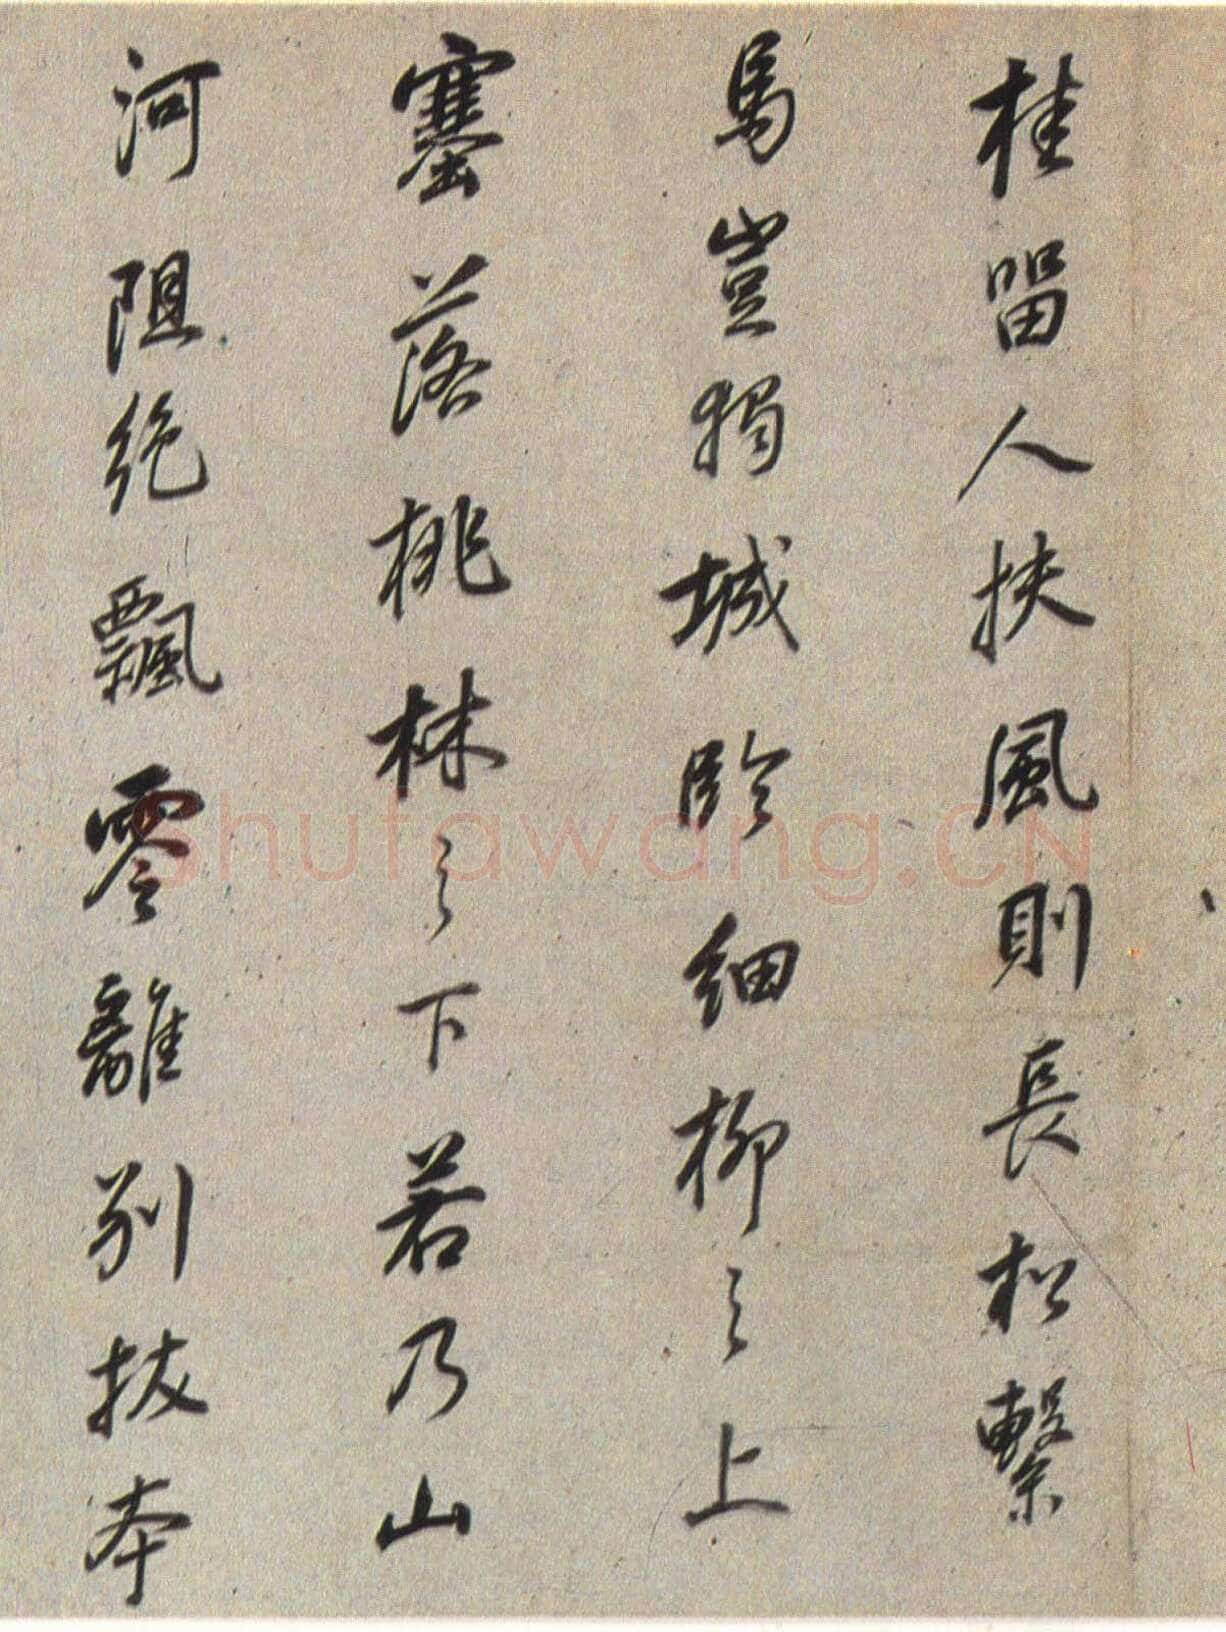 桂留人扶風則長松繫
馬豈獨城臨細柳之上
塞落桃林之下若乃山
河阻絕飄零離別拔本
shufawang.CN